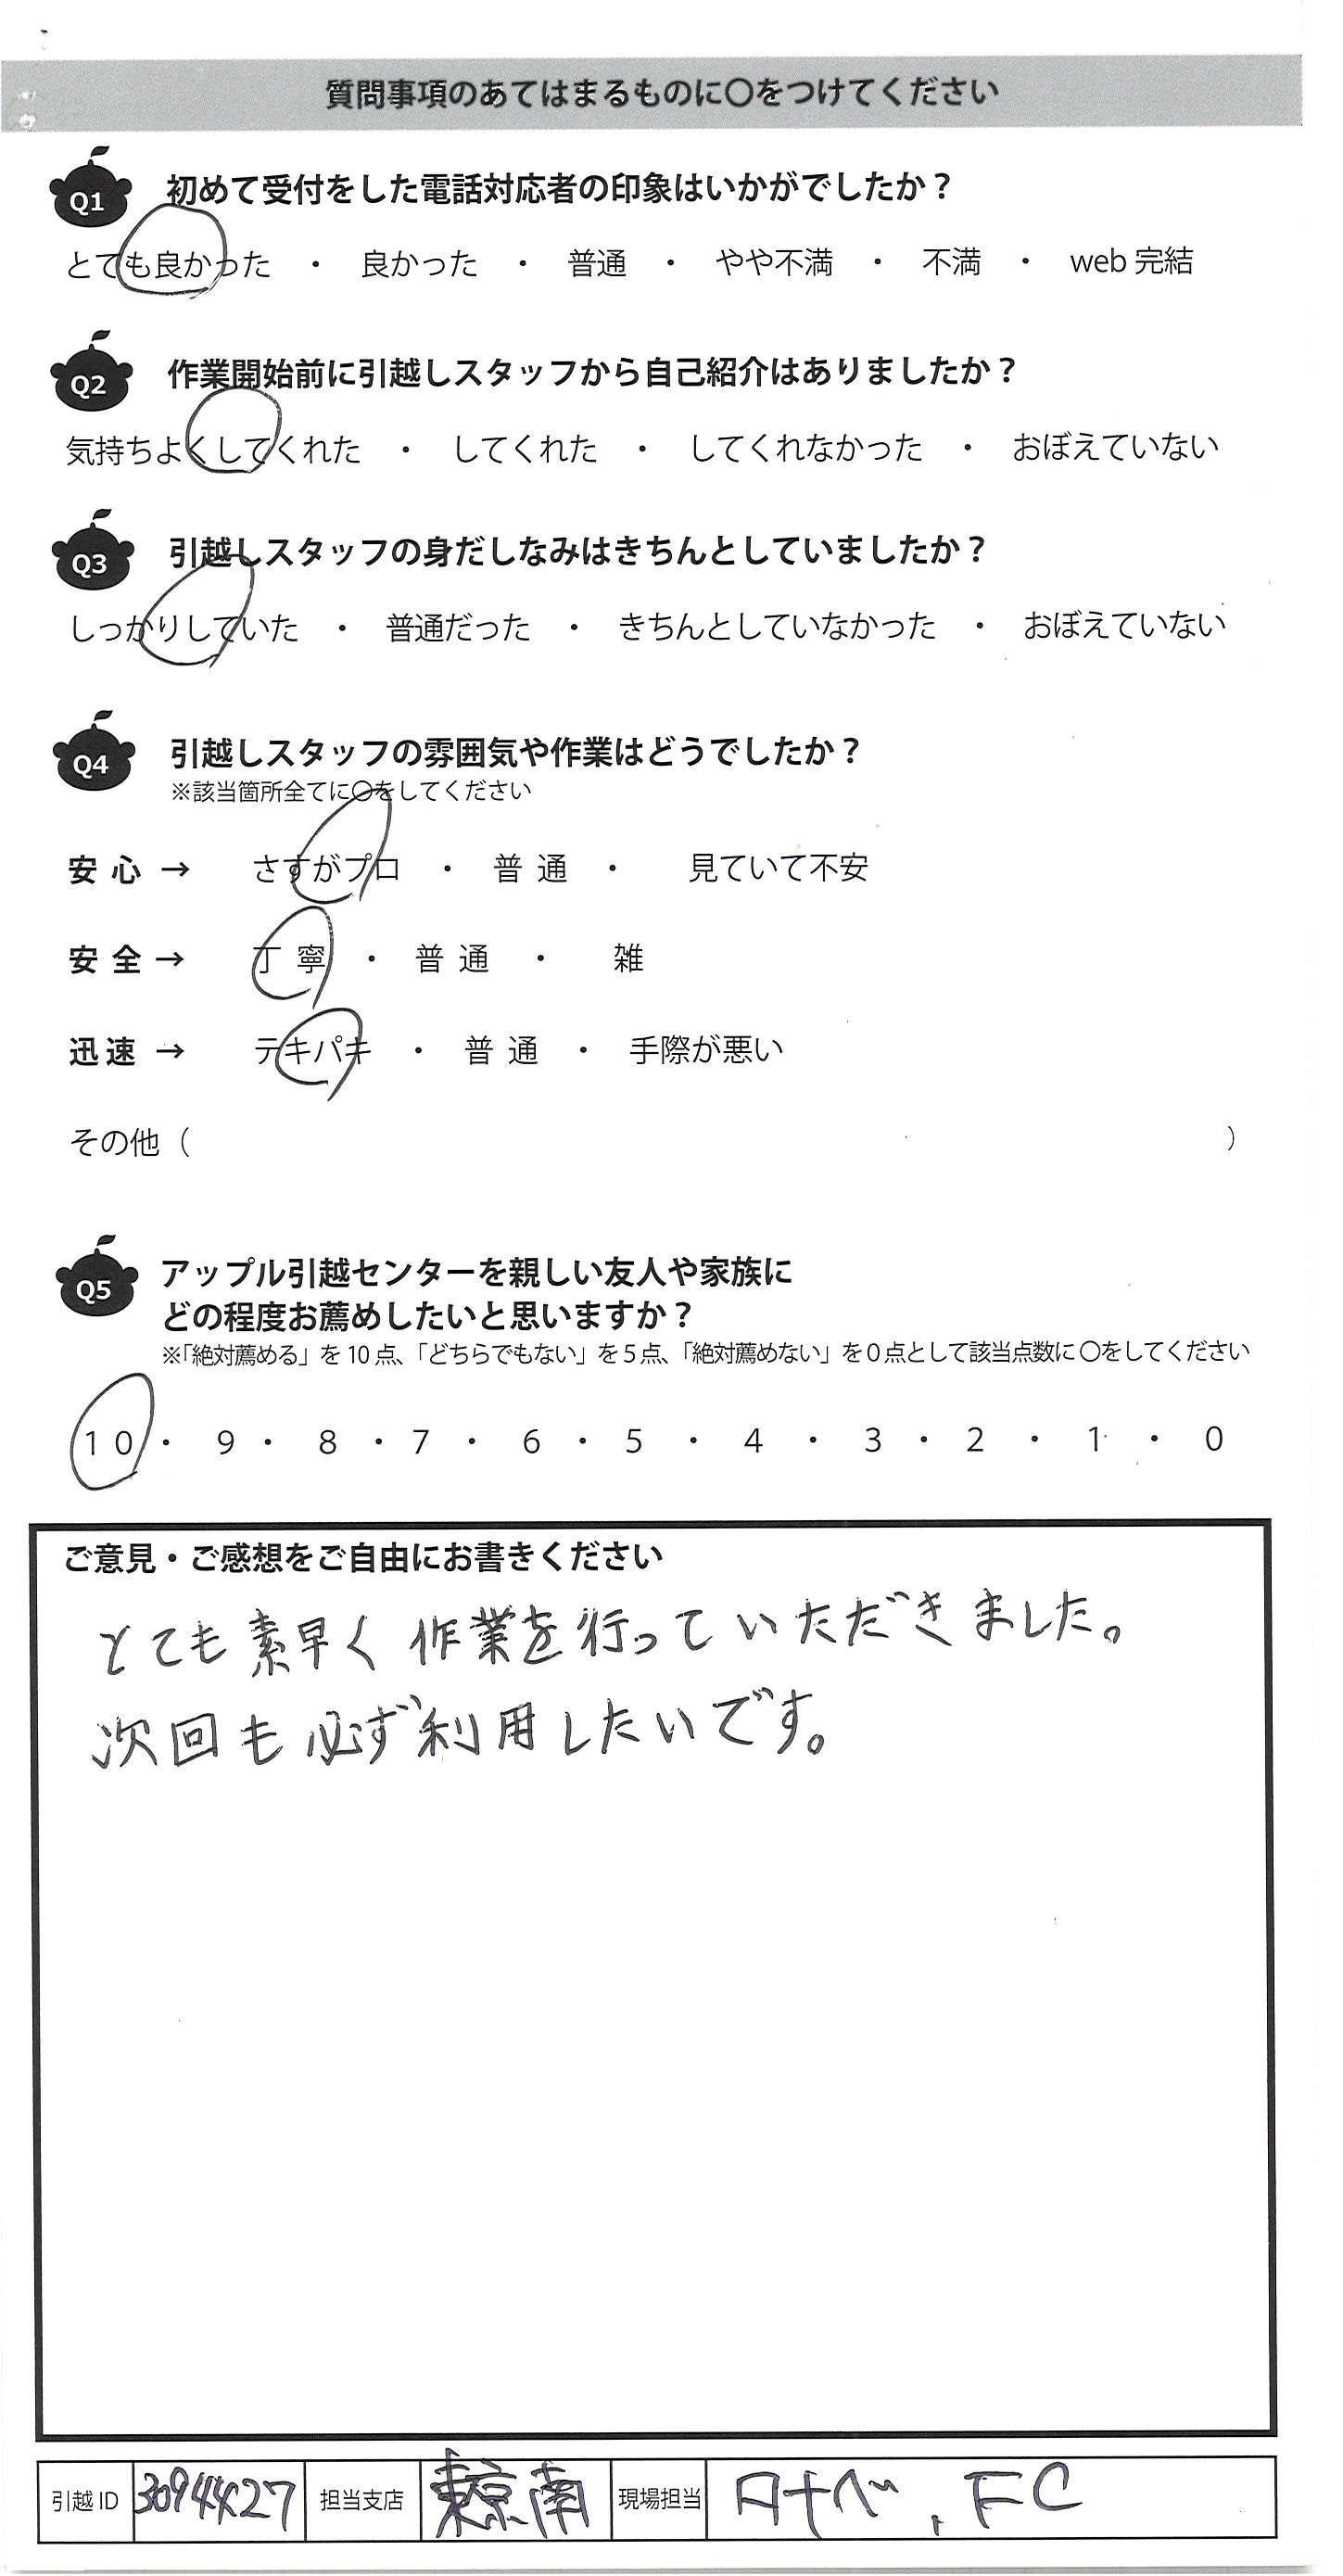 質問事項のあてはまるものに〇をつけてください
Q1 初めて受付をした電話対応者の印象はいかがでしたか？
とても良かった ・ 良かった ・ 普通 ・ やや不満 ・ 不満 ・ web 完結
Q2 作業開始前に引越しスタッフから自己紹介はありましたか？
気持ちよくしてくれた ・ してくれた ・ してくれなかった ・ おぼえていない
Q3 引越しスタッフの身だしなみはきちんとしていましたか？
しっかりしていた ・ 普通だった ・ きちんとしていなかった ・ おぼえていない
Q4 引越しスタッフの雰囲気や作業はどうでしたか？
※該当箇所全てに〇をしてください
安心 → さすがプロ ・ 普通 ・ 見ていて不安
安全 → 丁寧 ・ 普通 ・ 雑
迅速 → テキパキ ・ 普通 ・ 手際が悪い
その他（ ）
Q5 アップル引越センターを親しい友人や家族に
どの程度お薦めしたいと思いますか？
※「絶対薦める」を 10 点、「どちらでもない」を 5 点、「絶対薦めない」を 0 点として該当点数に 〇をしてください
10 ・ 9 ・ 8 ・ 7 ・ 6 ・ 5 ・ 4 ・ 3 ・ 2 ・ 1 ・ 0
ご意見・ご感想をご自由にお書きください
とても素早く作業を行っていただきました。
次回も必ず利用したいです。
引越 ID 3094427 担当支店 東京南 現場担当 FC